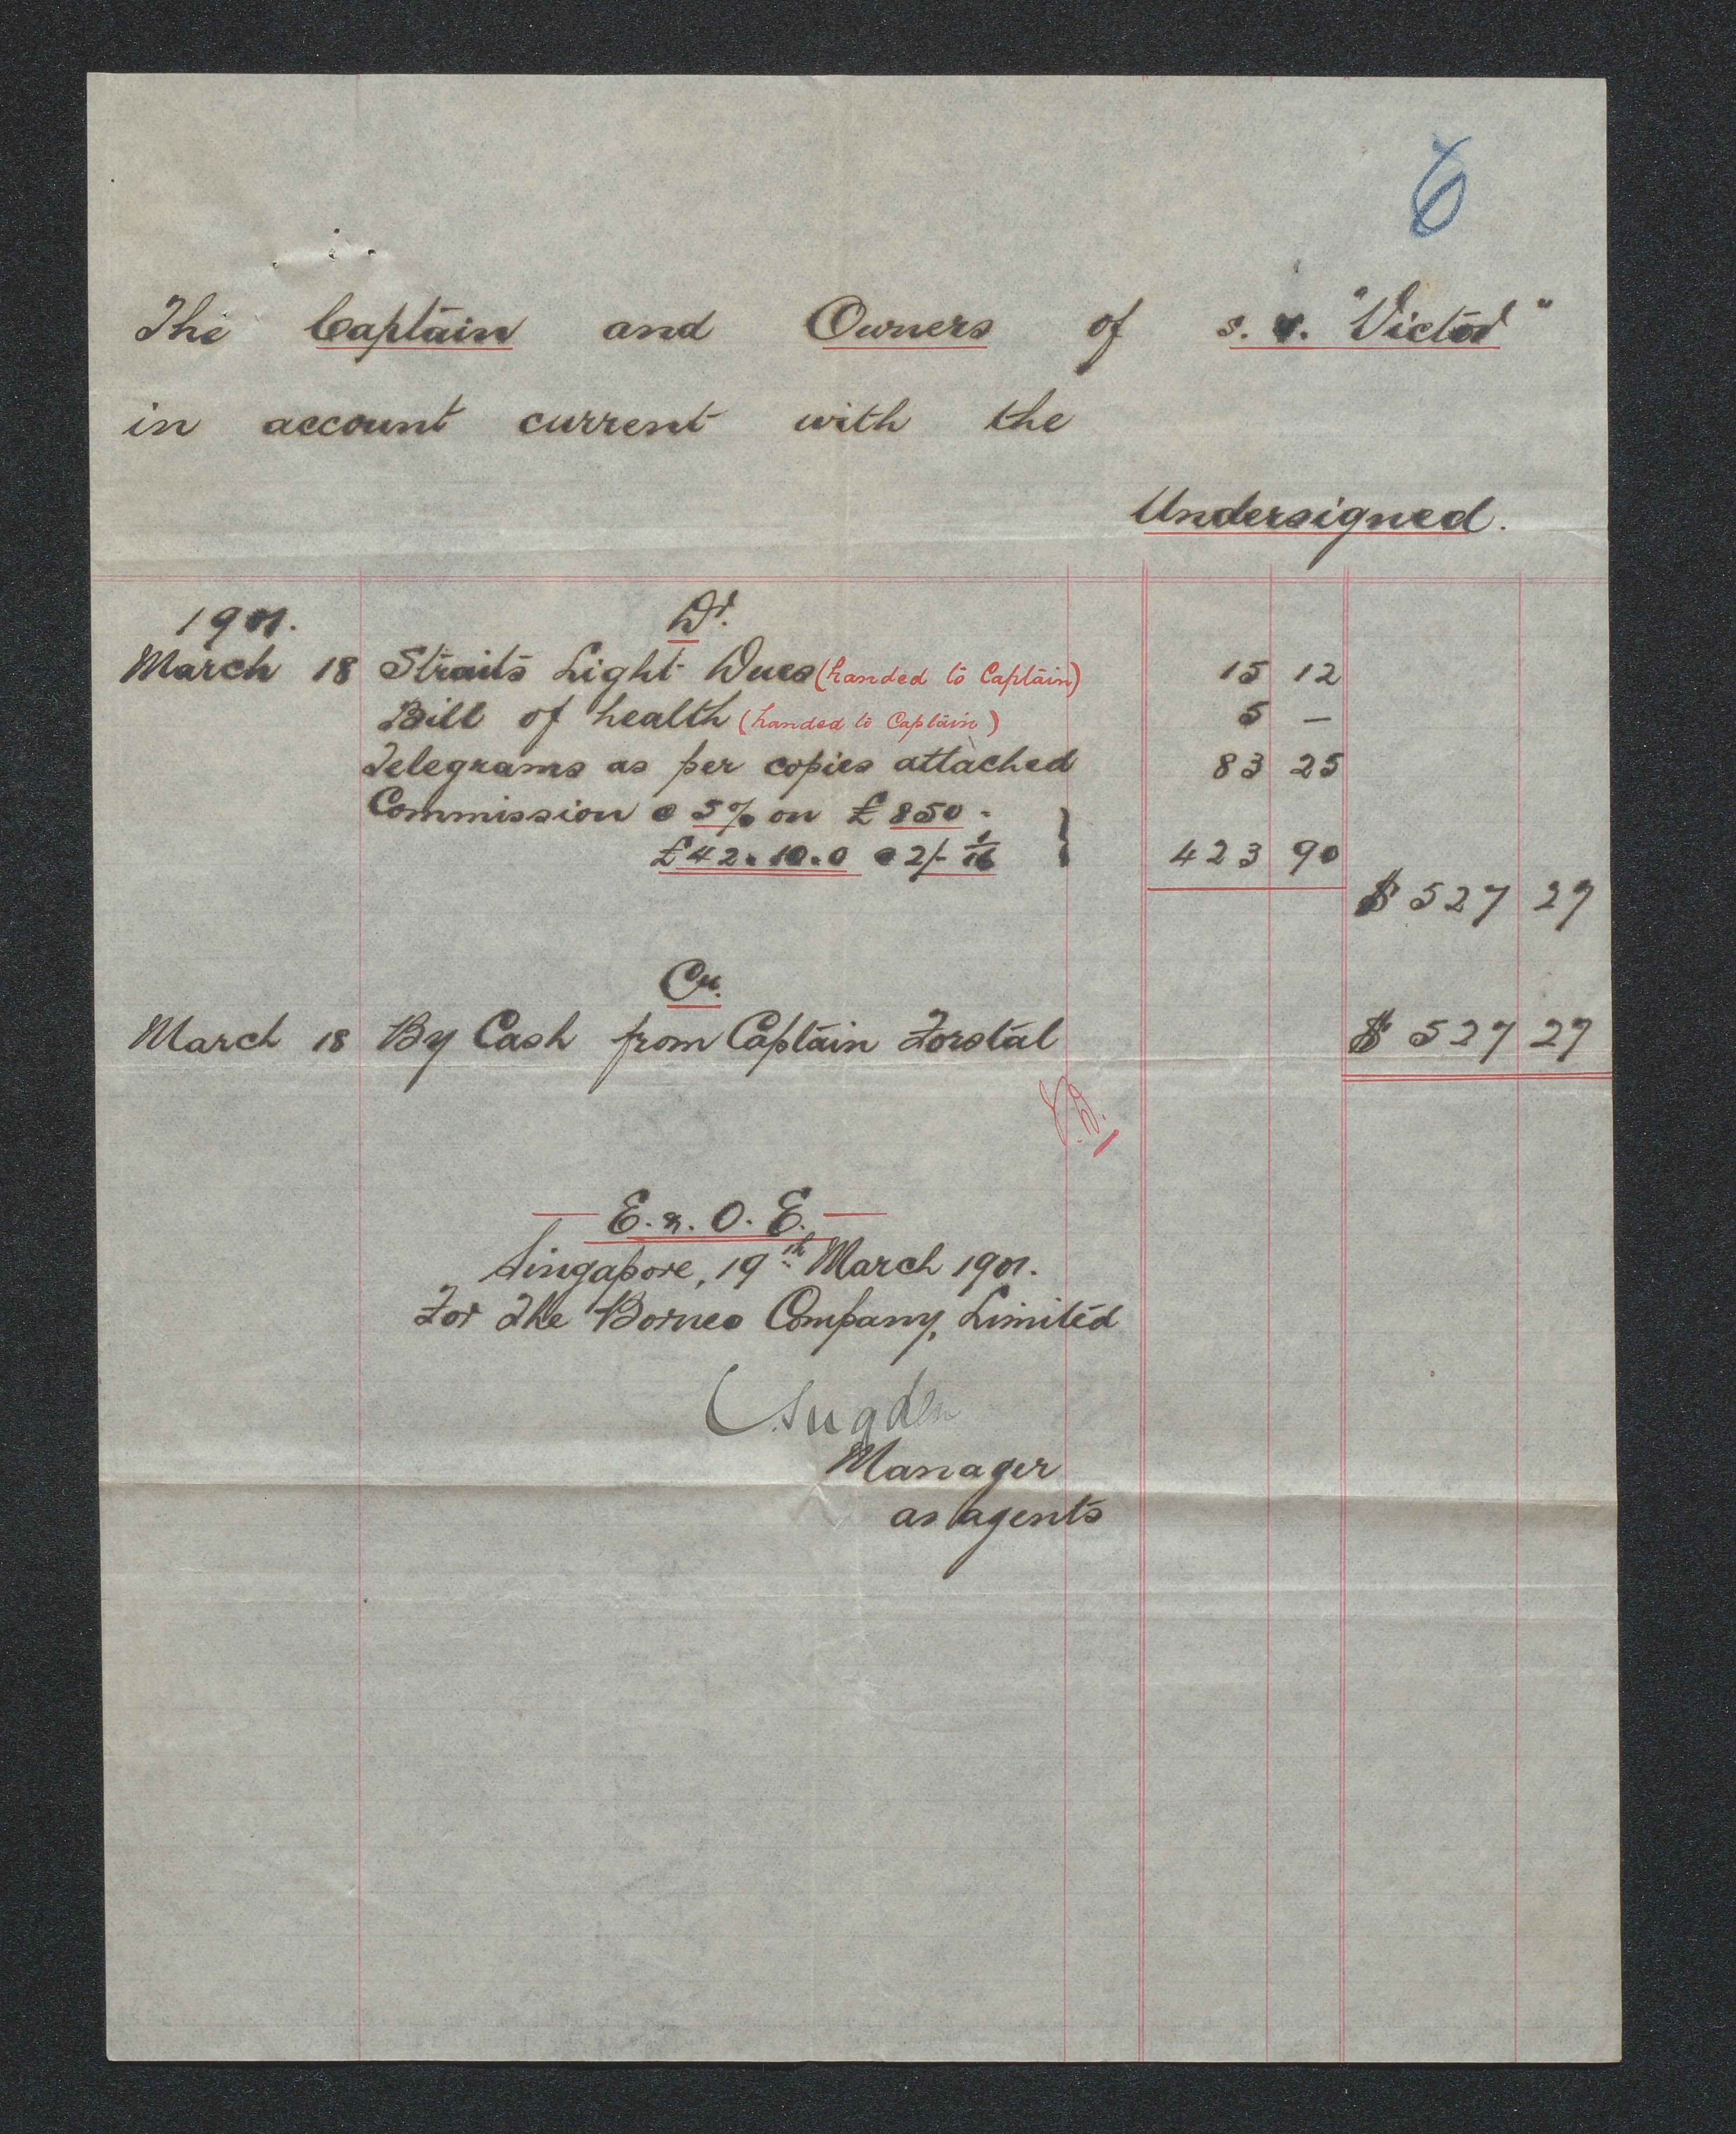 6
The Captain and Owners of s.v. "Victor"
in account current with the
Undersigned.
1901. Dr.
March 18 Straits Light Dues (handed to Captain) 15 12
Bill of health (handed to Captain) 5 —
Telegrams as per copies attached 83 25
Commission @ 5% on £850.
£42.10.0 @ 2/- 1/16 } 423 90
$ 527 27
Cr.
March 18 By Cash from Captain Forstal $ 527 27
— E. & O. E. —
Singapore, 19th March 1901.
For The Borneo Company, Limited
Sugden
Manager
as agents